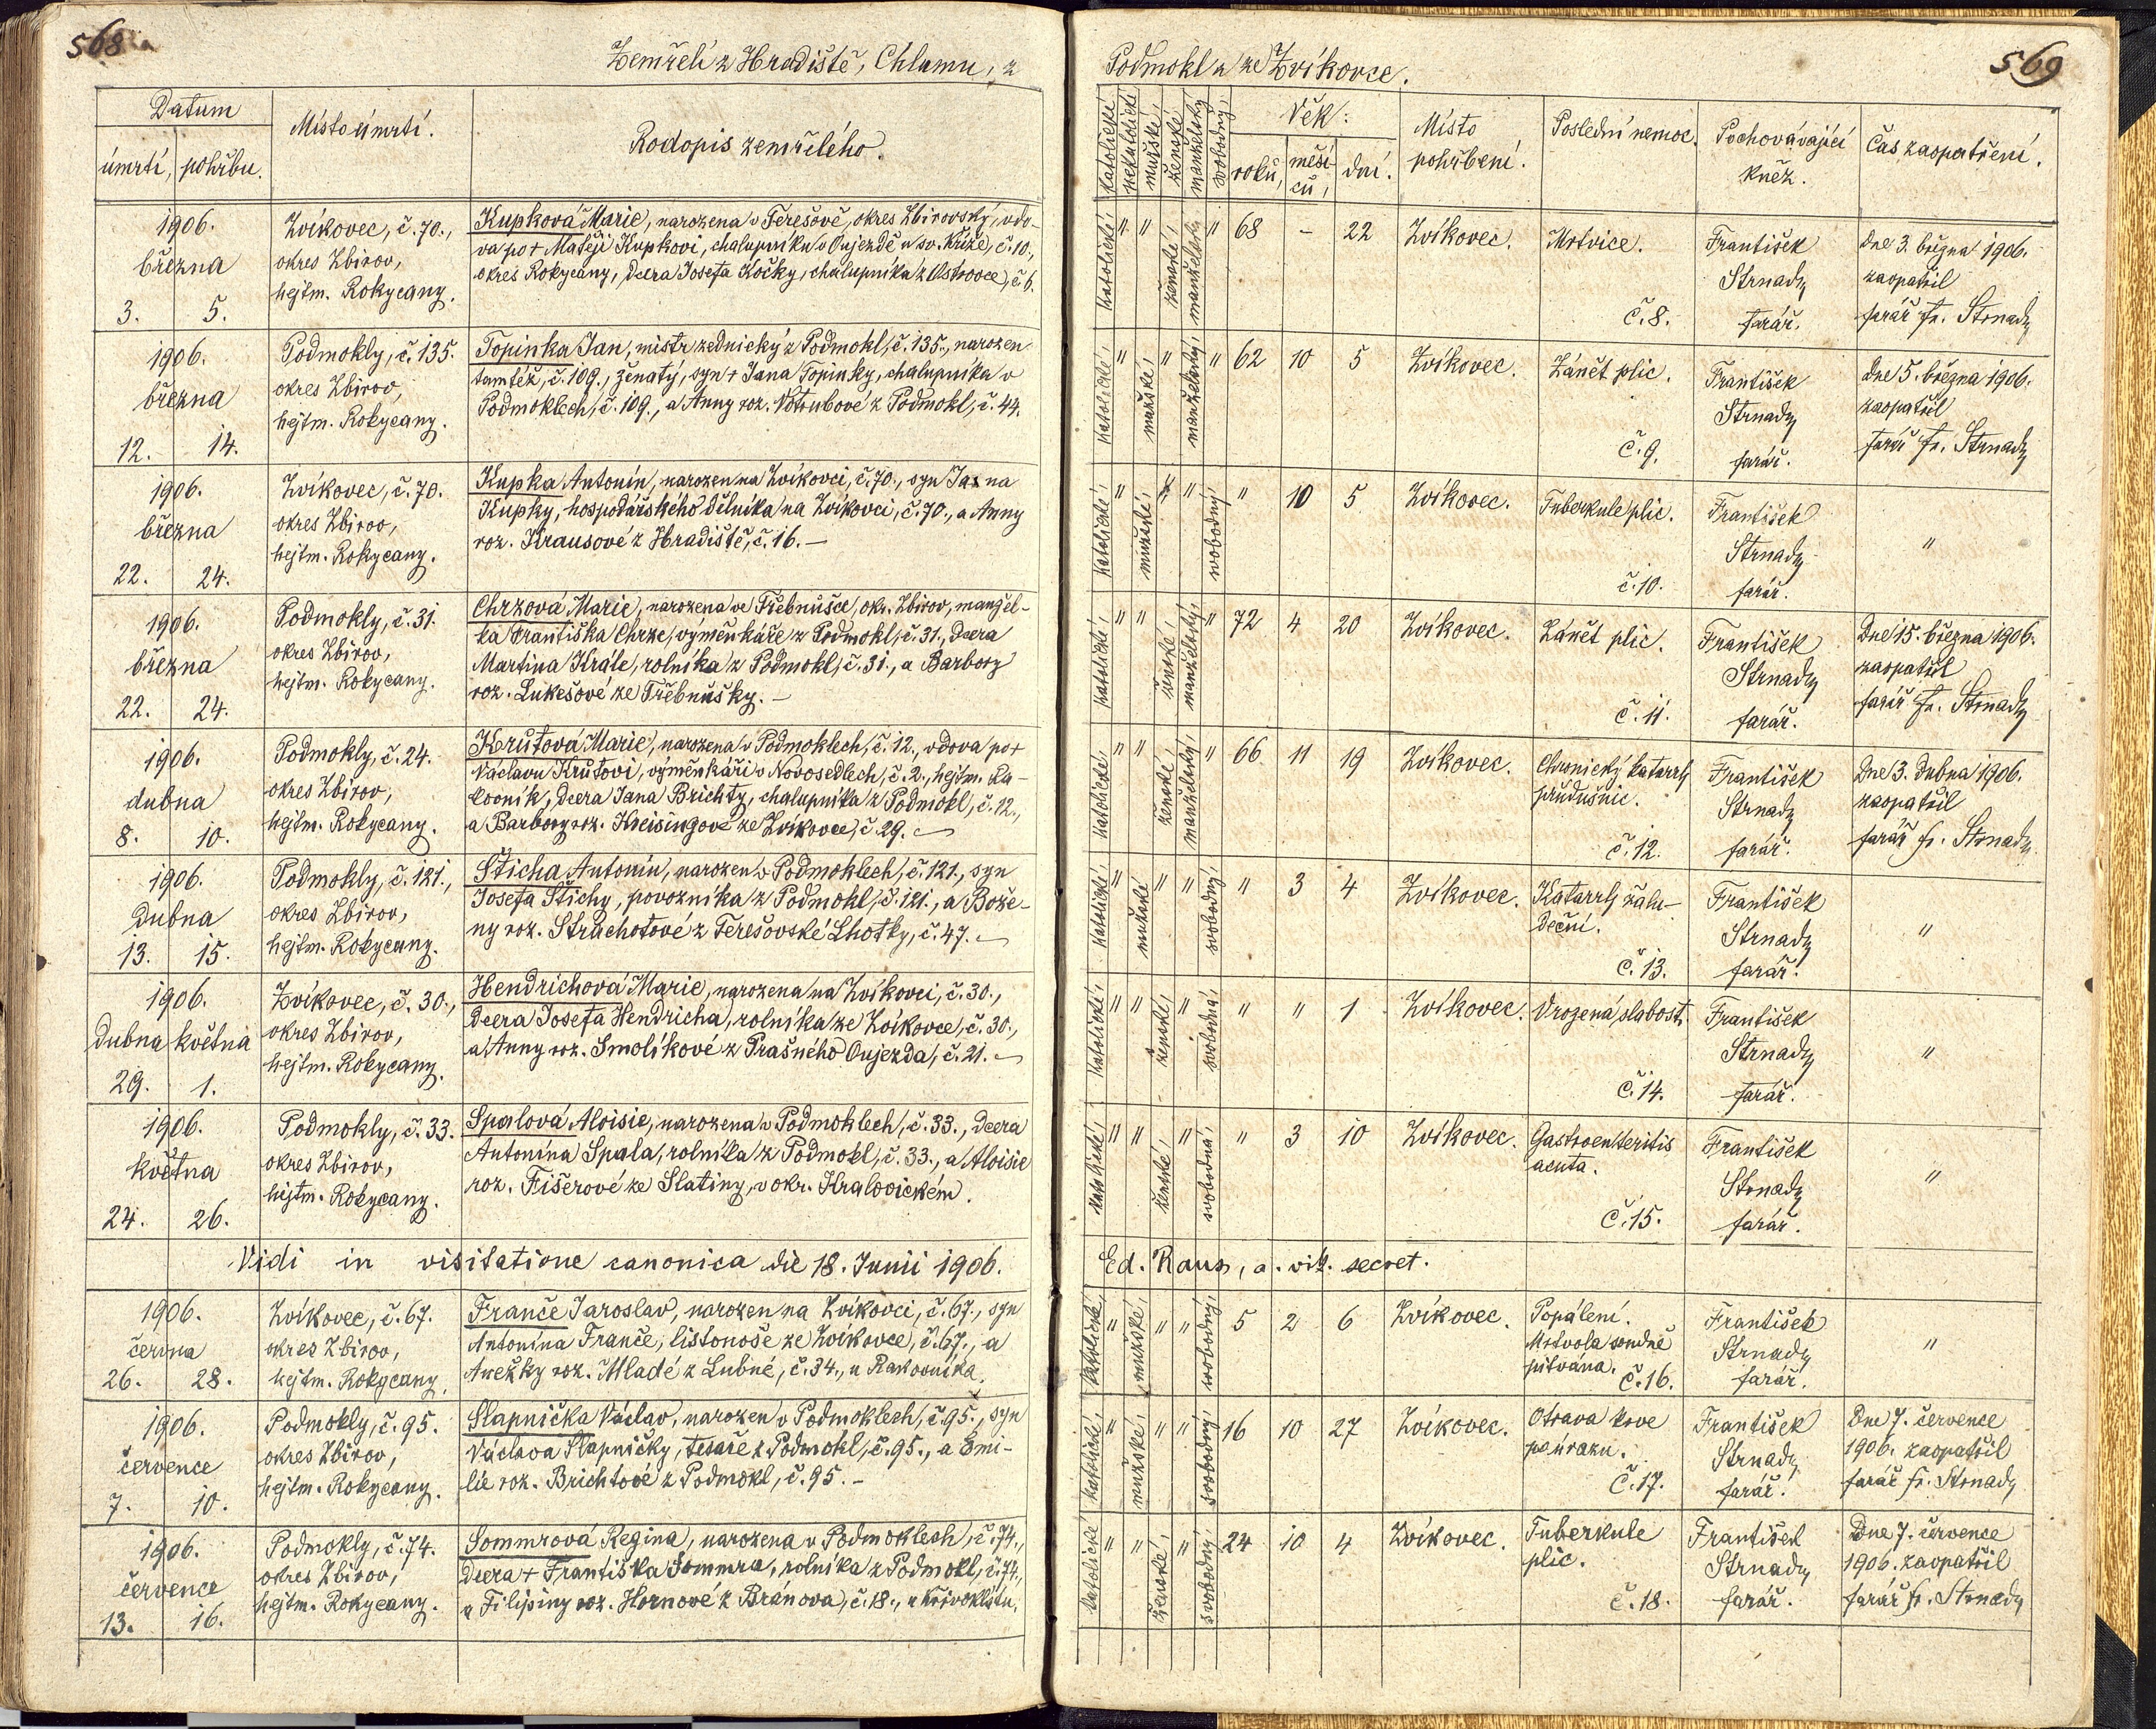 568
Zemřelí z Hradiště, Chlumu, z
Datum
úmrtí, pohřbu.
Místo úmrtí.
Rodopis zemřelého.
1906.
března
3. 5.
Zvíkovec, č. 70.,
okres Zbirov,
hejtm. Rokycany.
Kupková Marie, narozena v Terešově, okres Zbirovský, vdo-
va po + Matěji Kupkovi, chalupníku v Oujezdě u sv. Kříže, č. 10.,
okres Rokycany, dcera Josefa Kočky, chalupníka z Ostrovce, č. 6.
1906.
března
12. 14.
Podmokly, č. 135.
okres Zbirov,
hejtm. Rokycany.
Topinka Jan, mistr zednický z Podmokl, č. 135., narozen
tamtéž, č. 109., ženatý, syn + Jana Topinky, chalupníka v
Podmoklech, č. 109., a Anny roz. Votrubové z Podmokl, č. 44.
1906.
března
22. 24.
Zvíkovec, č. 70.
okres Zbirov,
hejtm. Rokycany.
Kupka Antonín, narozen na Zvíkovci, č. 70., syn Jana
Kupky, hospodářského dělníka na Zvíkovci, č. 70., a Anny
roz. Krausové z Hradiště, č. 16. –
1906.
března
22. 24.
Podmokly, č. 31.
okres Zbirov,
hejtm. Rokycany.
Chrzová Marie, narozena ve Třebnušce, okr. Zbirov, manžel-
ka Františka Chrze, výměnkáře z Podmokl, č. 31., dcera
Martina Krále, rolníka z Podmokl, č. 31., a Barbory
roz. Lukešové ze Třebnušky. –
1906.
dubna
8. 10.
Podmokly, č. 24.
okres Zbirov,
hejtm. Rokycany.
Krutová Marie, narozena v Podmoklech, č. 12., vdova po +
Václavu Krutovi, výměnkáři v Novosedlech, č. 2., hejtm. Ra-
kovník, dcera Jana Brichty, chalupníka z Podmokl, č. 12.,
a Barbory roz. Kreisingové ze Zvíkovce, č. 29.
1906.
dubna
13. 15.
Podmokly, č. 121.,
okres Zbirov,
hejtm. Rokycany.
Šticha Antonín, narozen v Podmoklech, č. 121., syn
Josefa Štichy, povozníka z Podmokl, č. 121., a Bože-
ny roz. Strachotové z Terešovské Lhotky, č. 47.
1906.
dubna května
29. 1.
Zvíkovec, č. 30.,
okres Zbirov,
hejtm. Rokycany.
Hendrichová Marie, narozena na Zvíkovci, č. 30.,
dcera Josefa Hendricha, rolníka ze Zvíkovce, č. 30.,
a Anny roz. Smolíkové z Prašného Oujezda, č. 21.
1906.
května
24. 26.
Podmokly, č. 33.
okres Zbirov,
hejtm. Rokycany.
Spalová Aloisie, narozena v Podmoklech, č. 33., dcera
Antonína Spala, rolníka z Podmokl, č. 33., a Aloisie
roz. Fišerové ze Slatiny, v okr. Kralovickém.
Vidi in visitatione canonica die 18. Junii 1906.
1906.
června
26. 28.
Zvíkovec, č. 67.
okres Zbirov,
hejtm. Rokycany.
Franče Jaroslav, narozen na Zvíkovci, č. 67., syn
Antonína Franče, listonoše ze Zvíkovce, č. 67., a
Anežky roz. Mladé z Lubné, č. 34., u Rakovníka.
1906.
července
7. 10.
Podmokly, č. 95.
okres Zbirov,
hejtm. Rokycany.
Slapnička Václav, narozen v Podmoklech, č. 95., syn
Václava Slapničky, tesaře z Podmokl, č. 95., a Emi-
lie roz. Brichtové z Podmokl, č. 95. –
1906.
července
13. 16.
Podmokly, č. 74.
okres Zbirov,
hejtm. Rokycany.
Sommrová Regina, narozena v Podmoklech, č. 74.,
dcera + Františka Sommra, rolníka z Podmokl, č. 74.,
a Filipiny roz. Hornové z Bránova, č. 18., u Křivoklátu.
569
Podmokl a ze Zvíkovce.
katolické
nekatolické
mužské,
ženské,
manželský
svobodný,
Věk:
roků, měsí-
ců, dní.
Místo
pohřbení.
Poslední nemoc.
Pochovávající
kněz.
Čas zaopatření.
katolické, " " ženské, manželské " 68 – 22 Zvíkovec. Mrtvice.
č. 8.
František
Strnady
farář.
Dne 3. března 1906.
zaopatřil
farář Fr. Strnady
katolické, " mužské, " manželský, " 62 10 5 Zvíkovec. Zánět plic.
č. 9.
František
Strnady
farář.
Dne 5. března 1906.
zaopatřil
farář Fr. Strnady
katolické, " mužské, " " svobodný, " 10 5 Zvíkovec. Tuberkule plic.
č. 10.
František
Strnady
farář.
"
katolické, " " ženské, manželský, " 72 4 20 Zvíkovec. Zánět plic.
č. 11.
František
Strnady
farář.
Dne 15. března 1906.
zaopatřil
farář Fr. Strnady
katolické, " " ženské, manželský, " 66 11 19 Zvíkovec. Chronický katarrh
průdušnic.
č. 12.
František
Strnady
farář.
Dne 3. dubna 1906.
zaopatřil
farář Fr. Strnady
katolické, " mužské " " svobodný, " 3 4 Zvíkovec. Katarrh žalu-
deční.
č. 13.
František
Strnady
farář.
"
katolické, " " ženské, " svobodná, " " 1 Zvíkovec. Vrozená slabost.
č. 14.
František
Strnady
farář.
"
katolické, " " ženské, " svobodná, " 3 10 Zvíkovec. Gastroenteritis
acuta.
č. 15.
František
Strnady
farář.
"
Ed. Raus, a. vik. secret.
katolické, " mužské, " " svobodný, 5 2 6 Zvíkovec. Popálení.
Mrtvola soudně
pitvána. č. 16.
František
Strnady
farář.
"
katolické, " mužské, " " svobodný, 16 10 27 Zvíkovec. Otrava krve
po úrazu.
č. 17.
František
Strnady
farář.
Dne 7. července
1906. zaopatřil
farář Fr. Strnady
katolické " " ženské, " svobodný, 24 10 4 Zvíkovec. Tuberkule
plic.
č. 18.
František
Strnady
farář.
Dne 7. července
1906. zaopatřil
farář Fr. Strnady